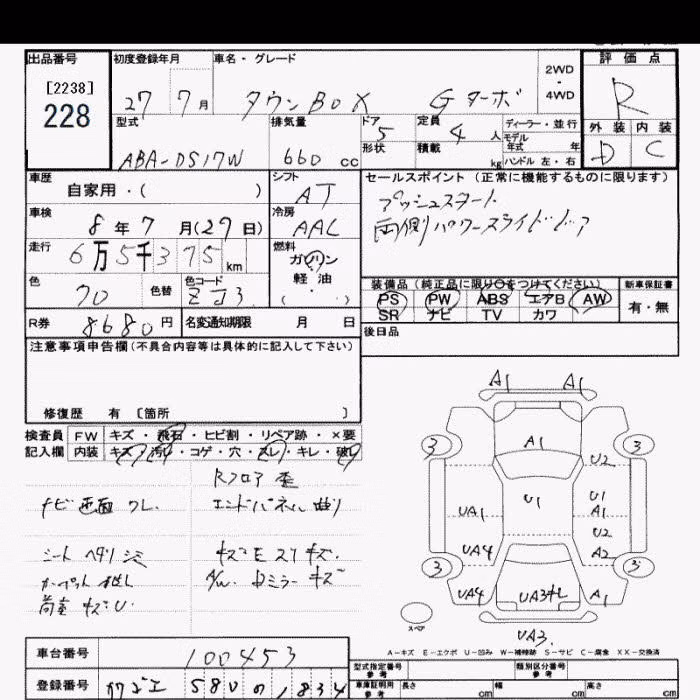 出品番号 初度登録年月 車名・グレード 評価点
[2238]
228
27 7月 タウンBOX Gターボ 2WD・4WD R
型式 排気量 ドア 5 定員 4人 ディーラー・並行 外装 内装
形状 積載 kg モデル年式 年 ハンドル 左・右
ABA-DS17W 660 cc D C
車歴 シフト セールスポイント (正常に機能するものに限ります)
自家用・( ) AT
プッシュスタート
車検 冷房
8年7月(29日) AAC
両側パワースライドドア
走行 燃料
6万5千375km ガソリン
軽油
( ・ )
色 色替 色コード 装備品 (純正品に限り○をつけてください) 新車保証書
ZJ3 PS PW ABS エアB AW 有・無
SR ナビ TV カワ
R券 8680円 名変通知期限 月 日 後日品
注意事項申告欄 (不具合内容等は具体的に記入して下さい)
修復歴 有 〔箇所 〕
検査員 FW キズ・飛石・ヒビ割・リペア跡・×要
記入欄 内装 キズ・汚れ・コゲ・穴・スレ・キレ・破レ
Rフロア 歪
ナビ画面ワレ エンドパネル曲り
シート ヘタリ シミ キズE スリキズ
荷室 キズU
A1 A1
3 A1 3
U2
UA1 U1 U1
A1
U2
UA4 A2
3 3
UA4 UA3 A1
スペア
UA3
A-キズ E-エクボ U-凹み W-補修跡 S-サビ C-腐食 XX-交換済
車台番号 100453
型式指定番号 参考 類別区分番号 参考
登録番号 580 の 1834
車庫証明用 参考 長さ cm 幅 cm 高さ cm